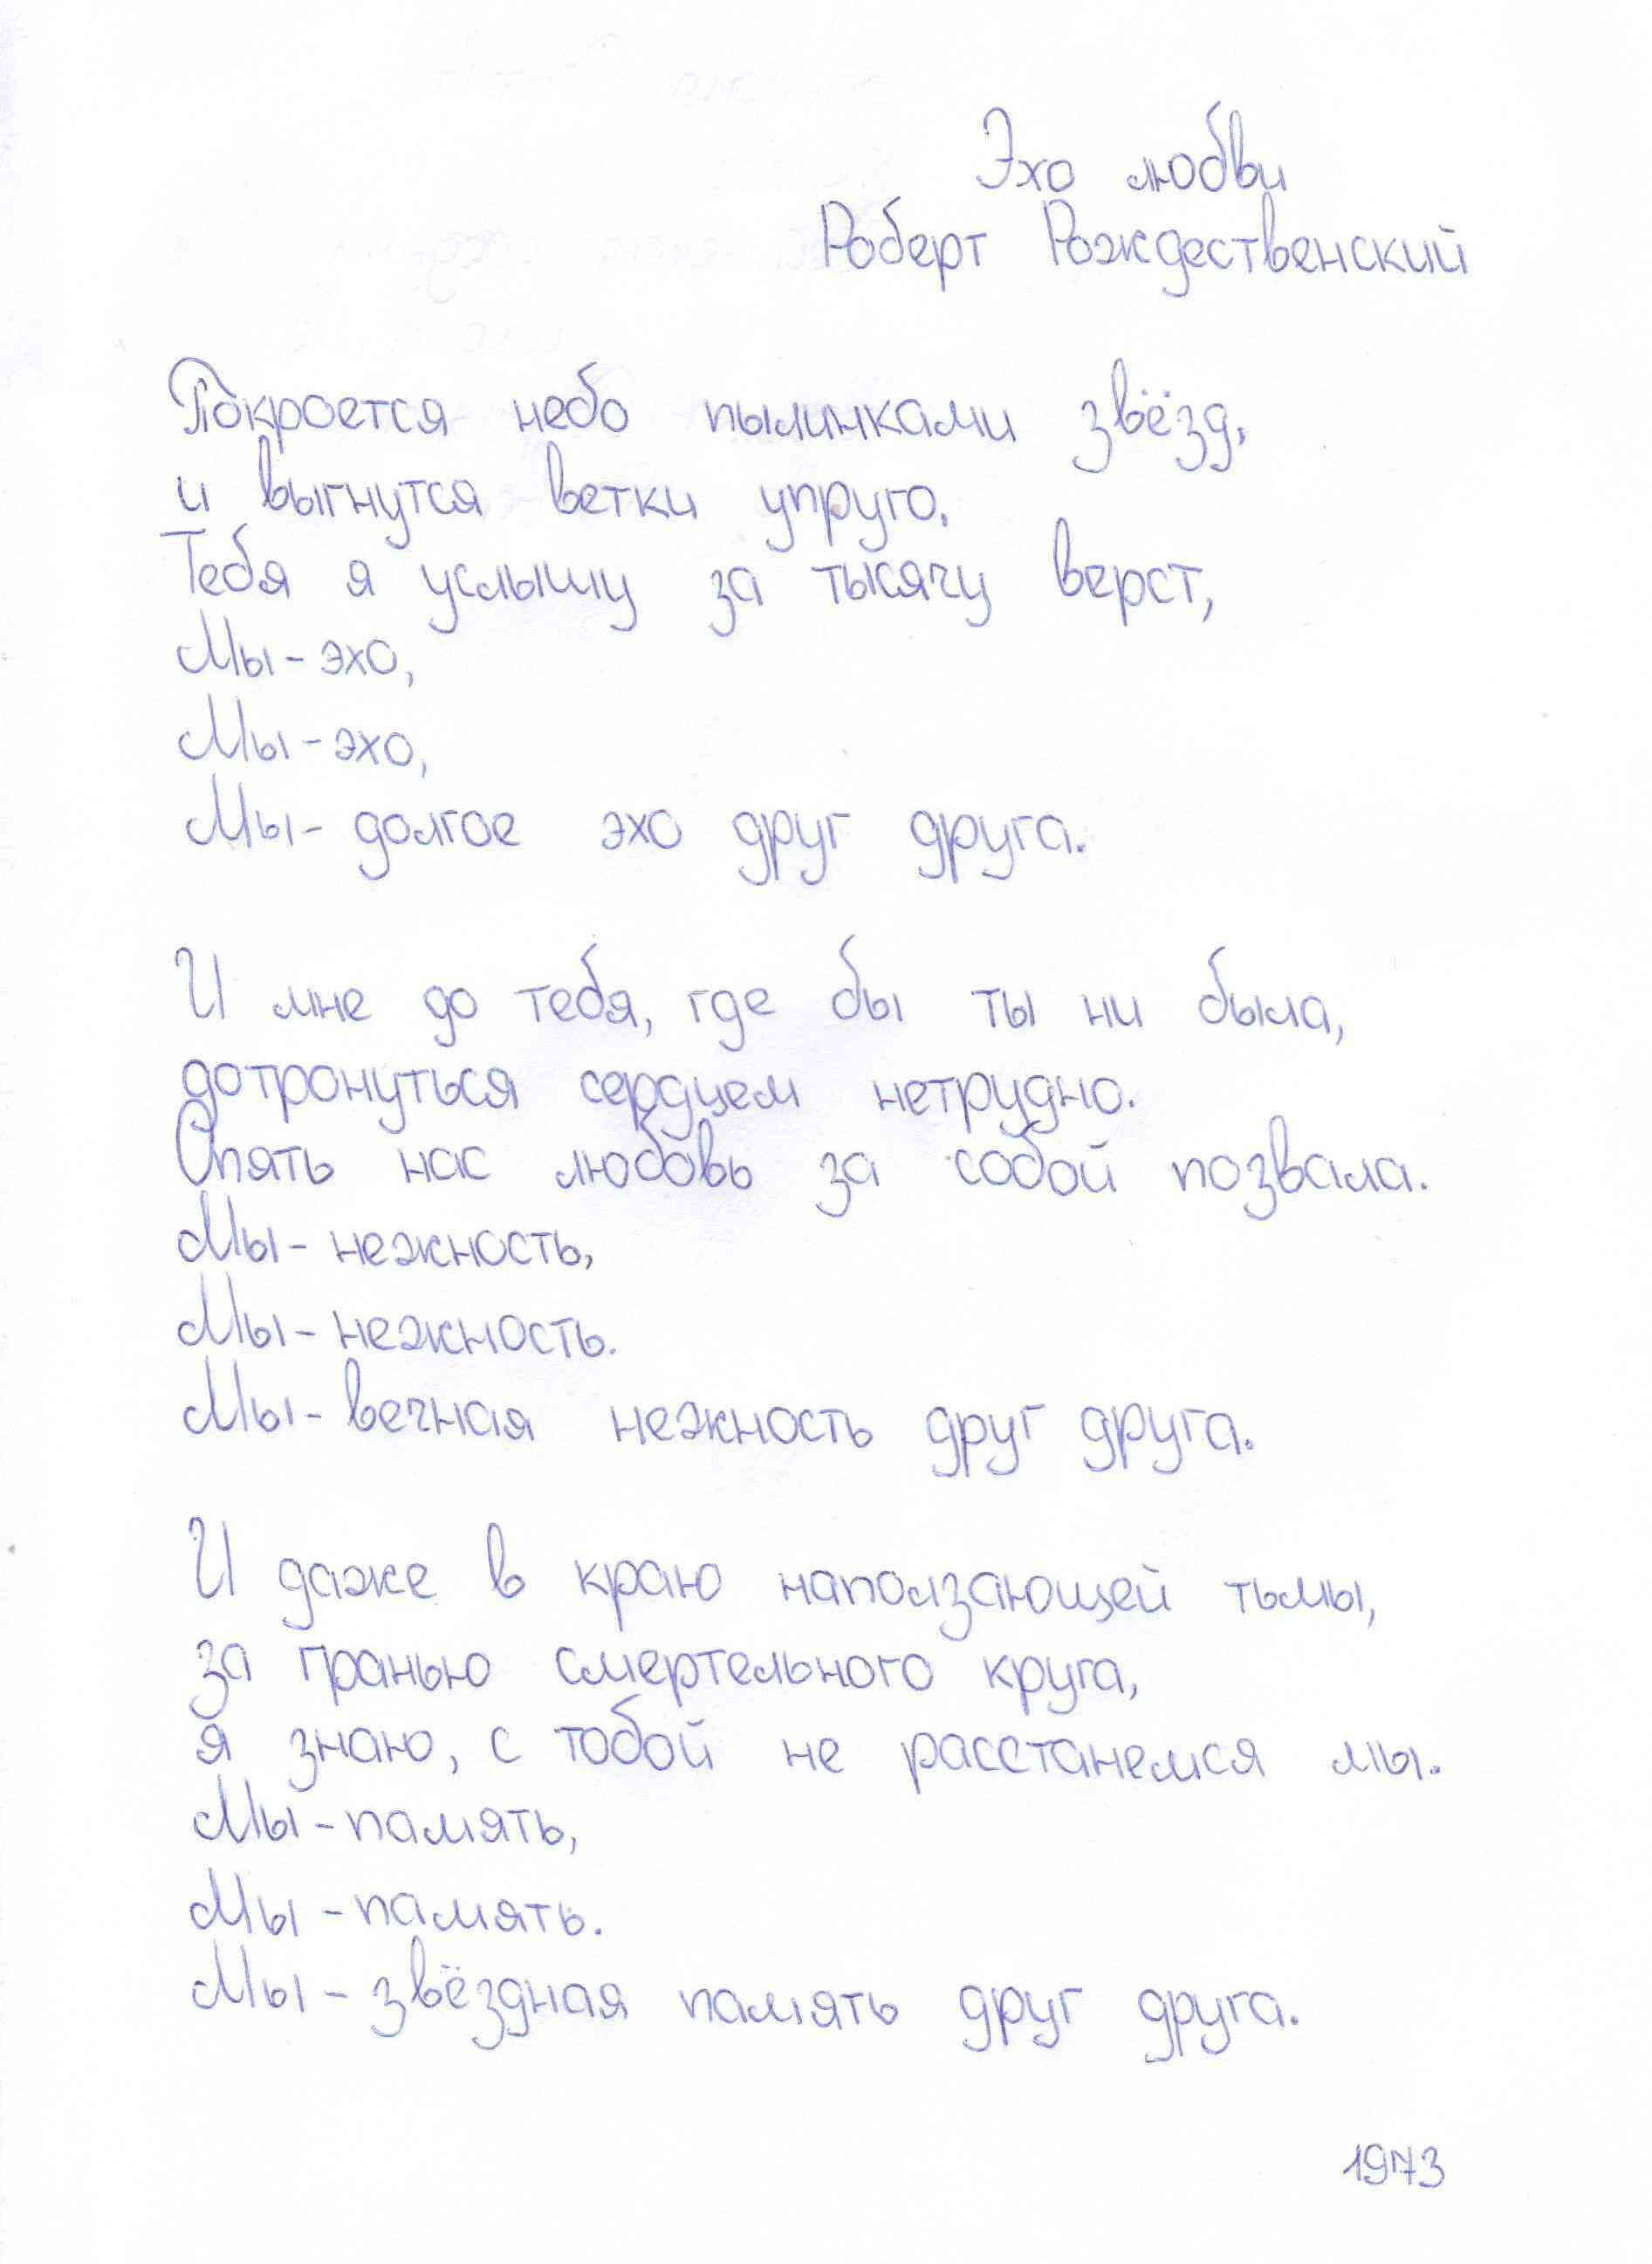 Эхо любви
Роберт Рождественский
Покроется небо пылинками звёзд,
и выгнутся ветки упруго.
Тебя я услышу за тысячу верст,
Мы - эхо,
Мы - эхо,
Мы - долгое эхо друг друга.
И мне до тебя, где бы ты ни была,
дотронуться сердцем нетрудно.
Опять нас любовь за собой позвала.
Мы - нежность,
Мы - нежность.
Мы - вечная нежность друг друга.
И даже в краю наползающей тьмы,
за гранью смертельного круга,
я знаю, с тобой не расстанемся мы.
Мы - память,
Мы - память.
Мы - звёздная память друг друга.
1973